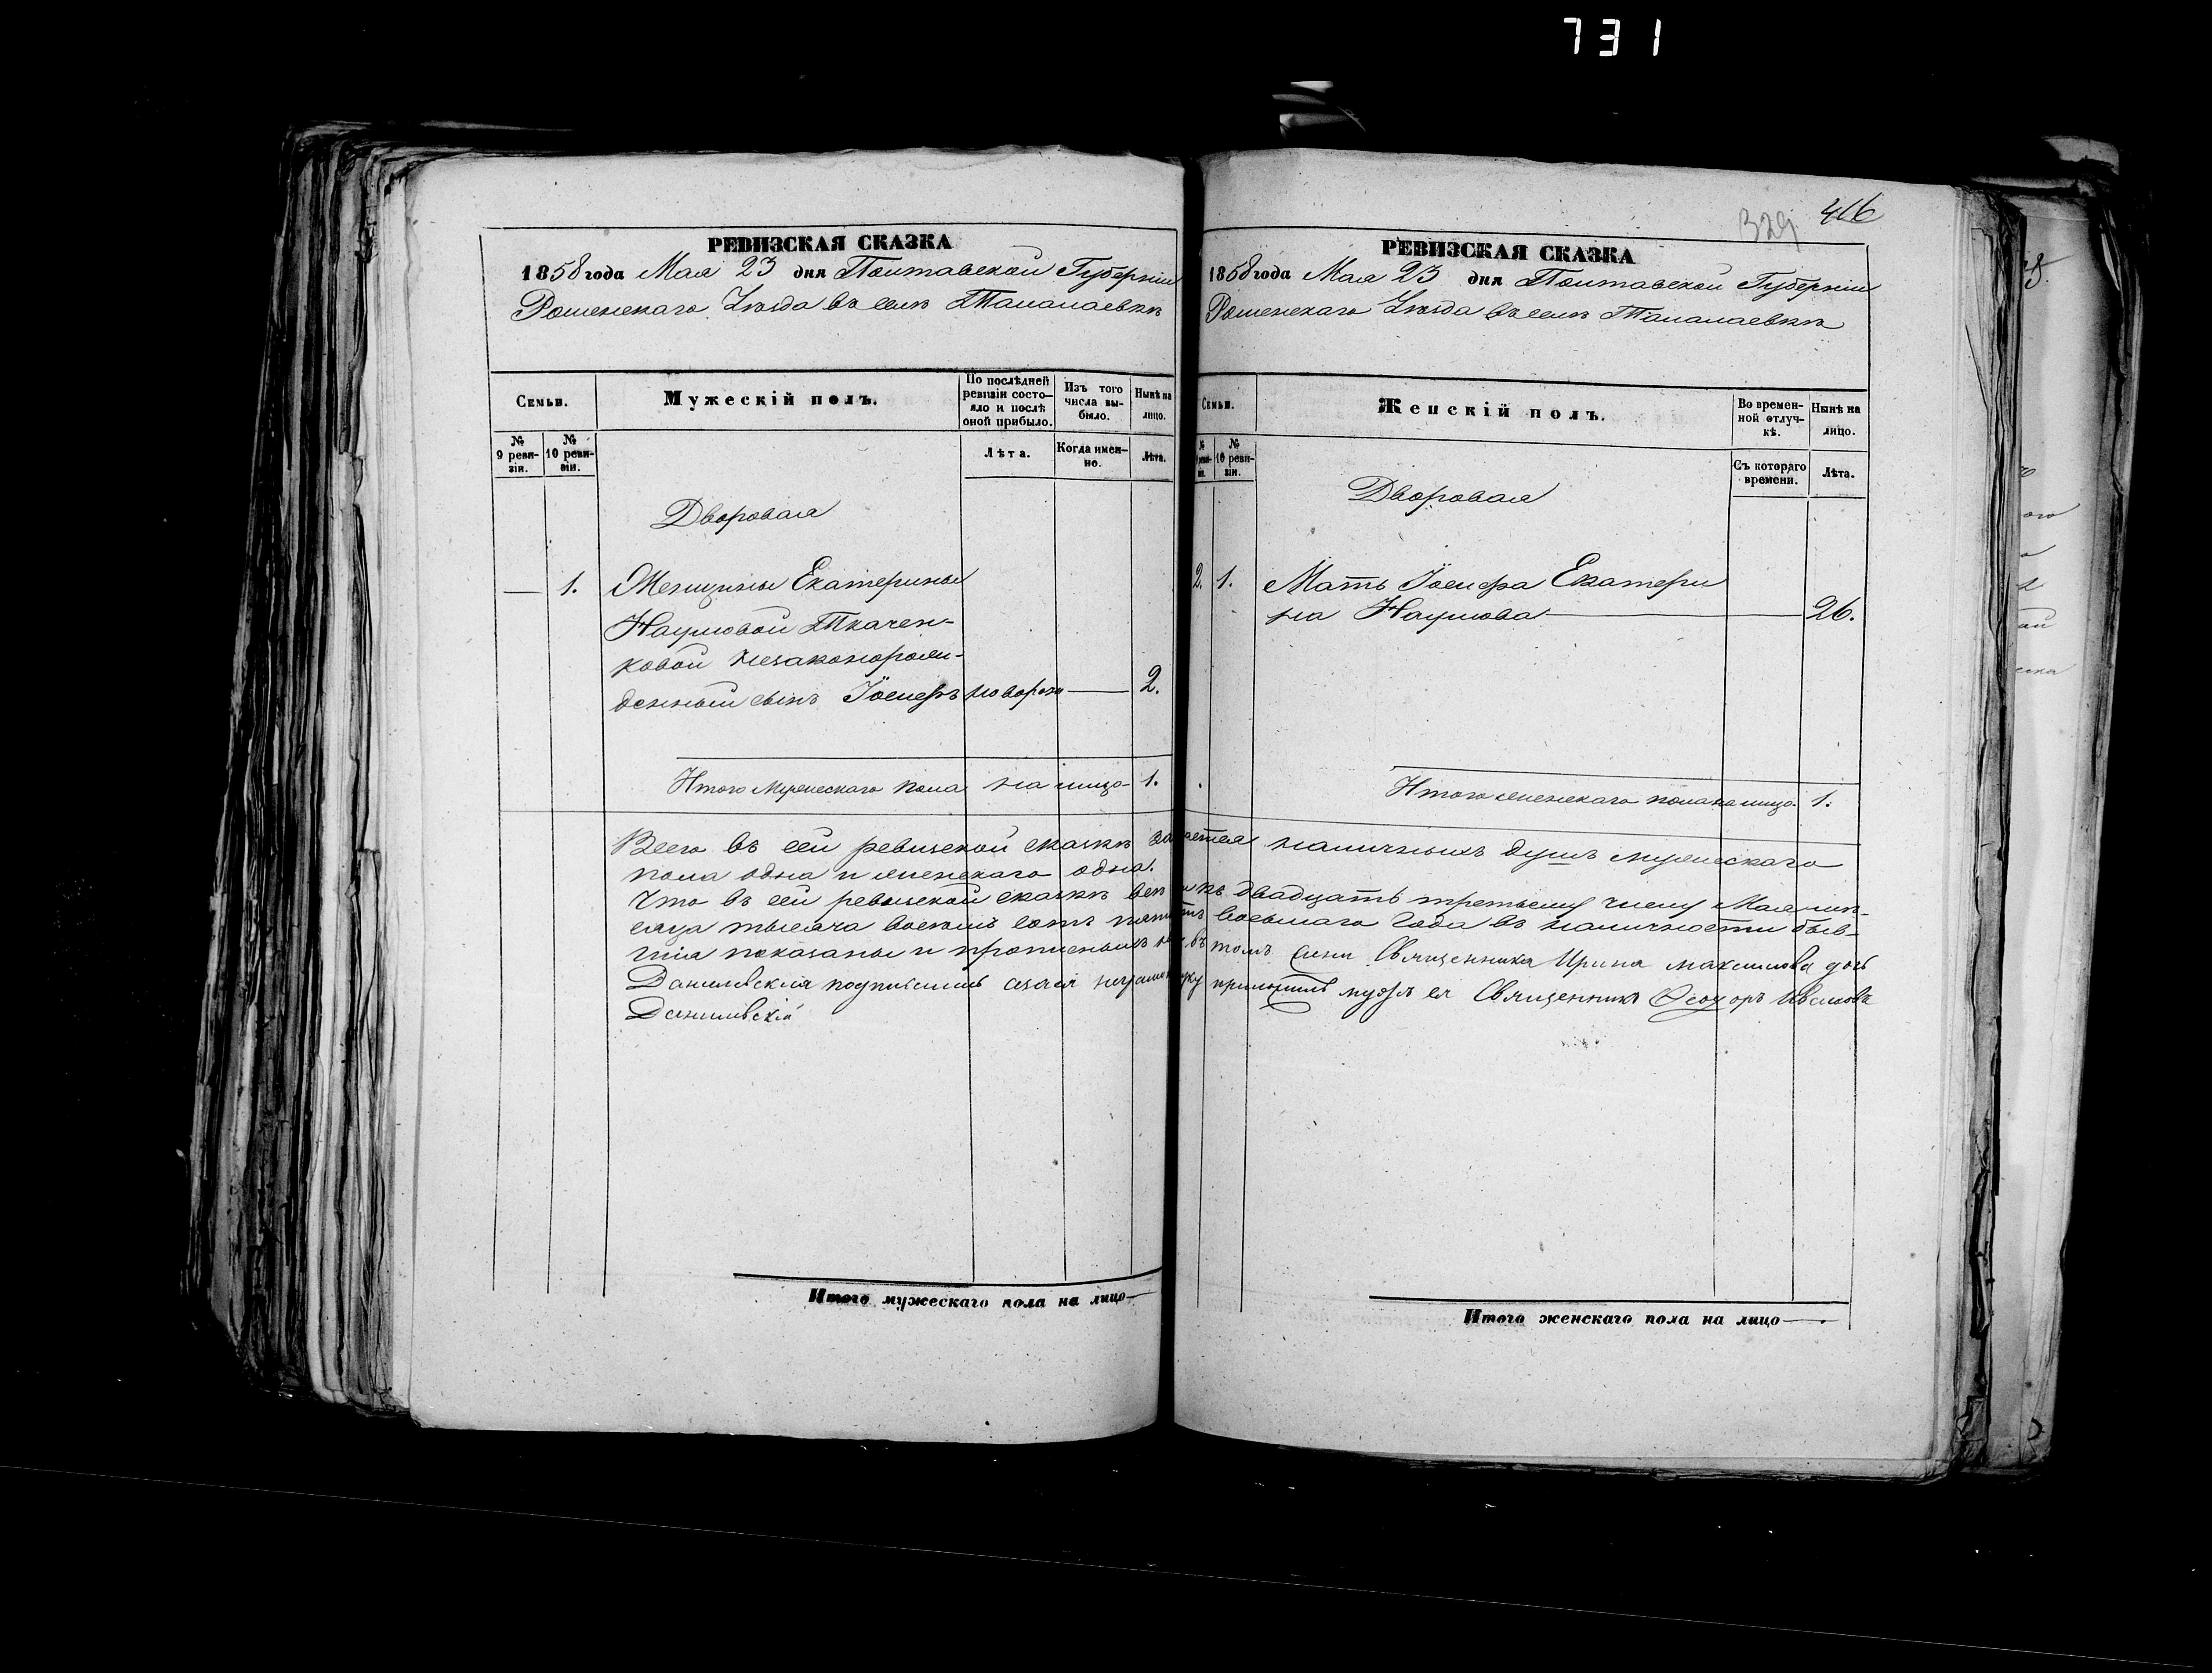 731
329
416
РЕВИЗСКАЯ СКАЗКА
1858 года Мая 23 дня Полтавской Губерніи
Роменскаго Уѣзда въ селѣ Талалаевкѣ
Семьи.
Мужескій полъ.
По послѣдней ревизіи состояло и послѣ оной прибыло.
Изъ того числа выбыло.
Нынѣ на лицо.
№ 9 ревизіи.
№ 10 ревизіи.
Лѣта.
Когда именно.
Лѣта.
Дворовая
— 1. Женщины Екатерины
Наумовой Ткачен-
ковой незаконорож-
денный сынъ Іосифъ новорож — 2.
Итого Мужескаго пола на лицо 1.
РЕВИЗСКАЯ СКАЗКА
1858 года Мая 23 дня Полтавской Губерніи
Роменскаго Уѣзда въ селѣ Талалаевкѣ
Семьи.
Женскій полъ.
Во временной отлучкѣ.
Нынѣ на лицо.
№ 10 ревизіи.
Съ котораго времени.
Лѣта.
Дворовая
2. 1. Мать Іосифа Екатери
на Наумова — 26.
Итого женскаго пола на лицо 1.
Всего въ сей ревизской сказкѣ наличныхъ душъ мужескаго
пола одна и женскаго одна.
Что въ сей ревизской сказкѣ всѣ къ двадцать третьему числу Мая мѣ-
сяца тысяча восемь сотъ пятьдесятъ восьмаго года въ наличности быв-
шіе показаны и прописныхъ нѣтъ въ томъ Жена Священника Ирина Максимова дочь
Данилевская подписалась а за нея руку приложилъ мужъ ея Священникъ Ѳеодоръ Ивановъ
Данилевскій
Итого мужескаго пола на лицо —
Итого женскаго пола на лицо —